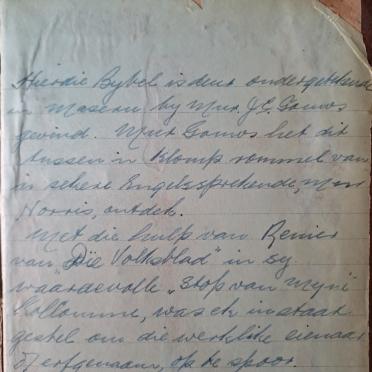 Hierdie Bybel is deur ondergetekende
in Maseru by Mnr J.C. Gouws
gevind. Mnr Gouws het dit
tussen 'n klomp rommel van
'n sekere Engelssprekende, Mnr
Norris, ontdek.
Met die hulp van Reinier
van "Die Volksblad" in sy
waardevolle "Stop van myne"
kollomme, was ek in staat
gestel om die werklike eienaar
of erfgenaam, op te spoor.